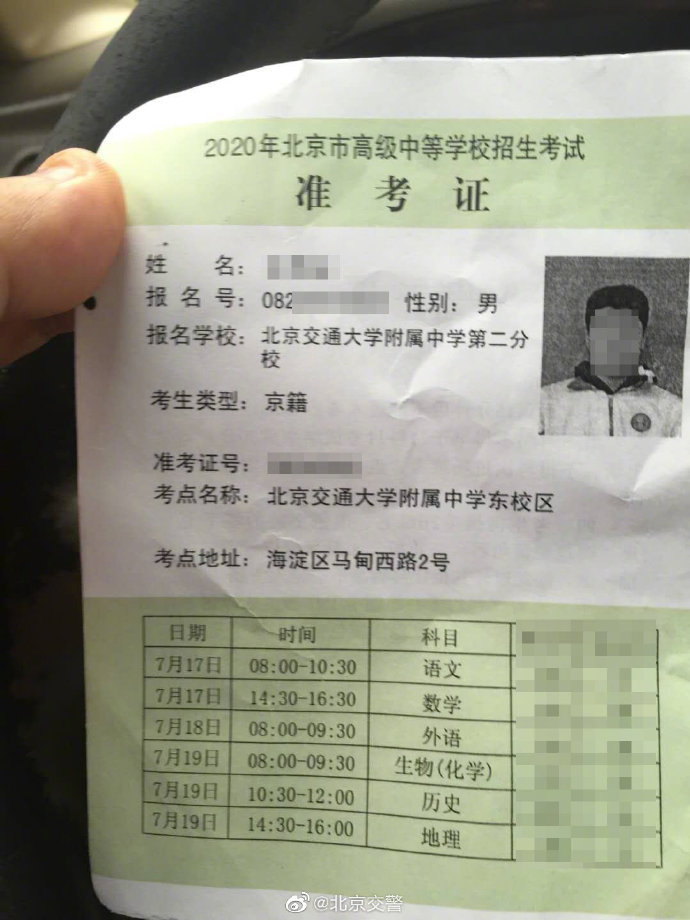 2020年北京市高级中等学校招生考试
准 考 证
姓 名：
报 名 号：082 性别：男
报名学校：北京交通大学附属中学第二分
校
考生类型：京籍
准考证号：
考点名称：北京交通大学附属中学东校区
考点地址：海淀区马甸西路2号
日期 时间 科目
7月17日 08:00-10:30 语文
7月17日 14:30-16:30 数学
7月18日 08:00-09:30 外语
7月19日 08:00-09:30 生物(化学)
7月19日 10:30-12:00 历史
7月19日 14:30-16:00 地理
@北京交警